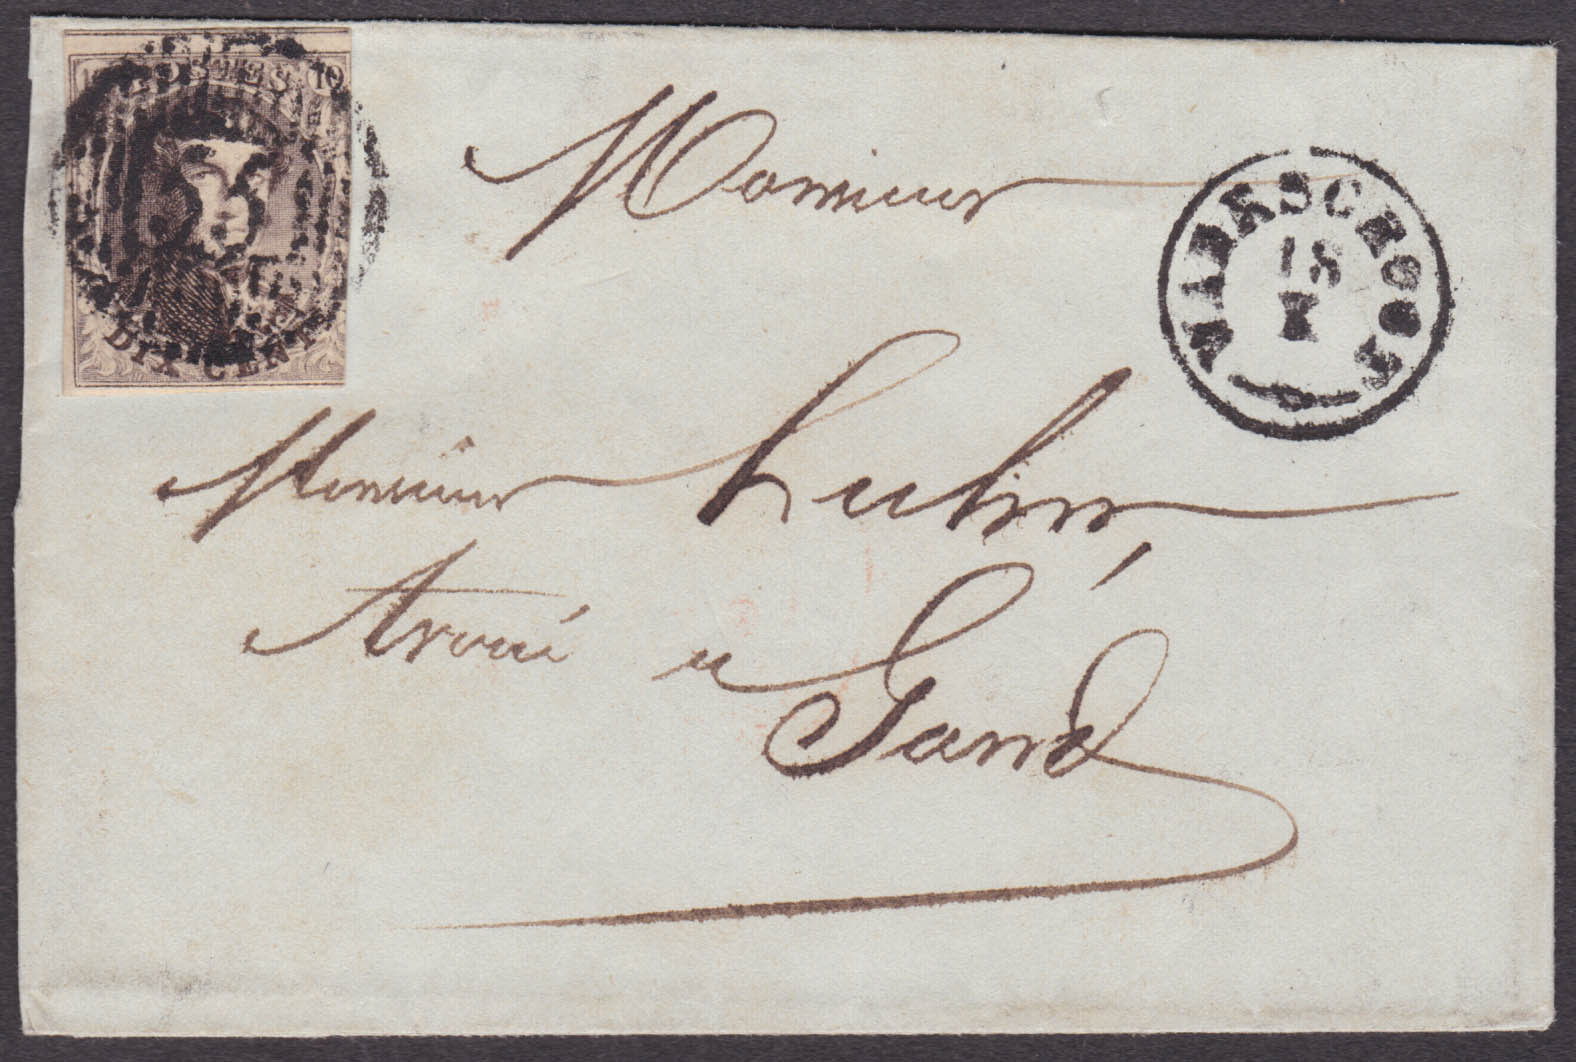 POSTES 10
DIX CENT
Monsieur
WAERSCHOOT
18
X
Monsieur Lubin,
Avoué a
Gand